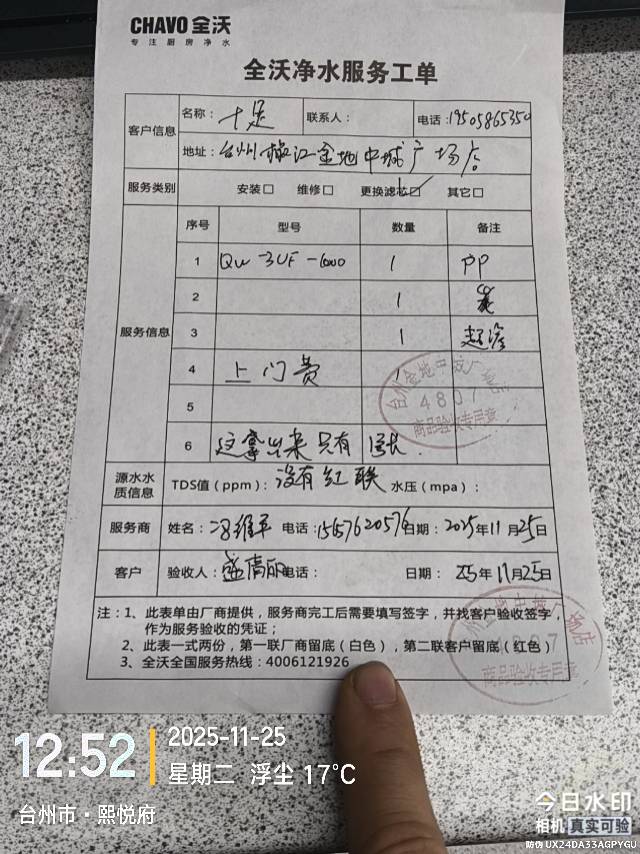 CHAVO 全沃
专注厨房净水
全沃净水服务工单
客户信息
名称：十足 联系人： 电话：19505865350
地址：台州椒江金地中城广场店
服务类别 安装□ 维修□ 更换滤芯☑ 其它□
服务信息
序号 型号 数量 备注
1 QW-3UF-1000 1 PP
2 1
3 1 超滤
4 上门费 1
5
6 这拿出来只有
源水水质信息 TDS值（ppm）：没有红联 水压（mpa）：
服务商 姓名：冯维平 电话：15157620576 日期：2025年11月25日
客户 验收人：盛倩丽 电话： 日期：25年11月25日
注：1、此表单由厂商提供，服务商完工后需要填写签字，并找客户验收签字，
作为服务验收的凭证；
2、此表一式两份，第一联厂商留底（白色），第二联客户留底（红色）
3、全沃全国服务热线：4006121926
台州金地中城广场店
4807
商品验收专用章
4807
商品验收专用章
12:52
2025-11-25
星期二 浮尘 17℃
台州市·熙悦府
今日水印
相机 真实可验
防伪 UX24DA33AGPYGU